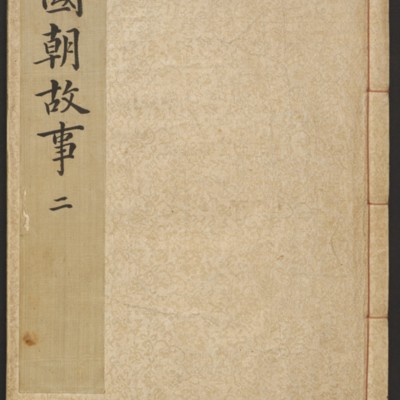 國朝故事 二